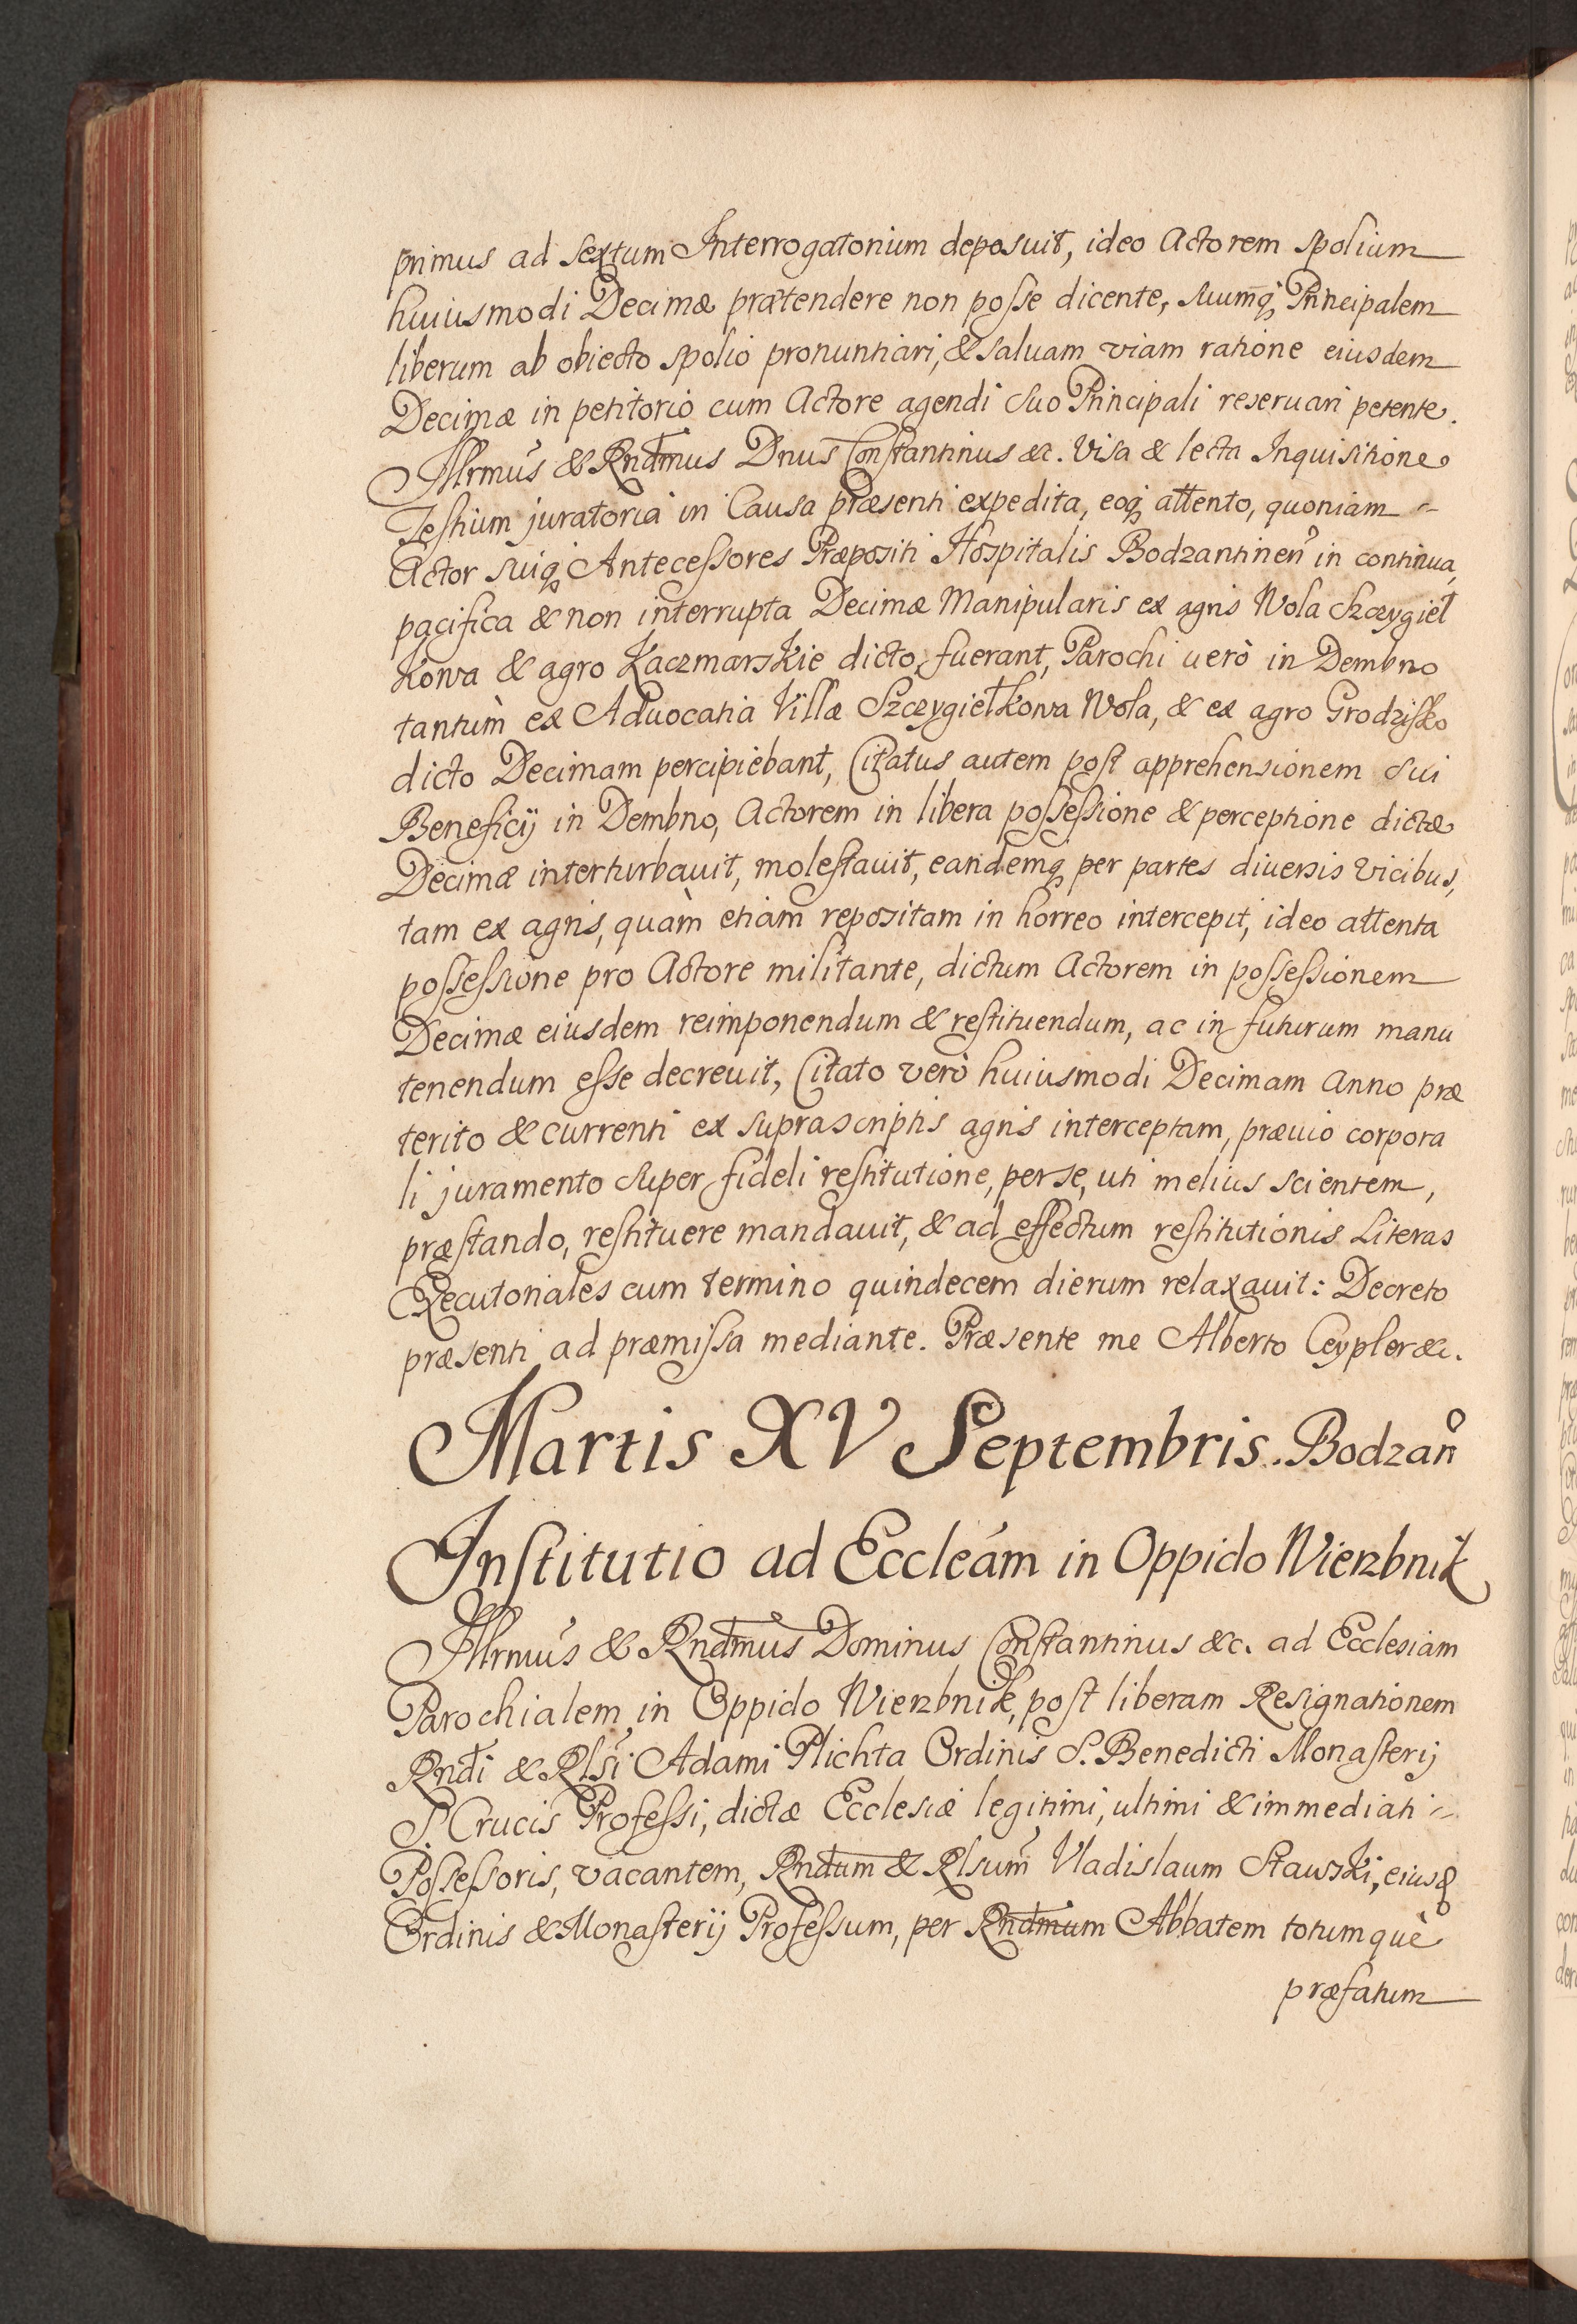 primus ad sextum Interrogatorium deposuit, ideo Actorem spolium
huiusmodi Decimæ prætendere non posse dicente, suumq; Principalem
liberum ab obiecto spolio pronuntiari, & saluam viam ratione eiusdem
Decimæ in petitorio cum Actore agendi suo Principali reseruari petente.
Illrmus & Rndmus Dnus Constantinus &c. Visa & lecta Inquisitione
Testium juratoria in Causa præsenti expedita, eoq; attento, quoniam
Actor suiq; Antecessores Præpositi Hospitalis Bodzantinen in continua,
pacifica & non interrupta Decimæ Manipularis ex agris Wola Szczygieł
Kowa & agro Kaczmarskie dicto, fuerant, Parochi uerò in Dembno
tantùm ex Aduocatia Villæ Szczygiełkowa Wola, & ex agro Grodzisko
dicto Decimam percipiebant, Citatus autem post apprehensionem sui
Beneficij in Dembno, Actorem in libera possessione & perceptione dictæ
Decimæ interturbauit, molestauit, eandemq; per partes diuersis vicibus,
tam ex agris, quàm etiam repositam in horreo intercepit, ideo attenta
possessione pro Actore militante, dictum Actorem in possessionem
Decimæ eiusdem reimponendum & restituendum, ac in futurum manu
tenendum esse decreuit, Citato verò huiusmodi Decimam Anno præ
terito & currenti ex suprascriptis agris interceptam, præuio corpora
li juramento super fideli restitutione, per se, uti melius scientem,
præstando, restituere mandauit, & ad effectum restitutionis Literas
Executoriales cum termino quindecem dierum relaxauit: Decreto
præsenti ad præmissa mediante. Præsente me Alberto Ceypler &c.
Martis XV Septembris. Bodzan
Institutio ad Eccleám in Oppido Wierzbnik
Illrmus & Rndmus Dominus Constantinus &c. ad Ecclesiam
Parochialem in Oppido Wierzbnik, post liberam Resignationem
Rndi & Rlsi Adami Plichta Ordinis S. Benedicti Monasterij
S. Crucis Professi, dictæ Ecclesiæ legitimi, ultimi & immediati
Possessoris, vacantem, Rndum & Rlsum Vladislaum Stawski, eiusd
Ordinis & Monasterij Professum, per Rndmum Abbatem totumquè
præfatum